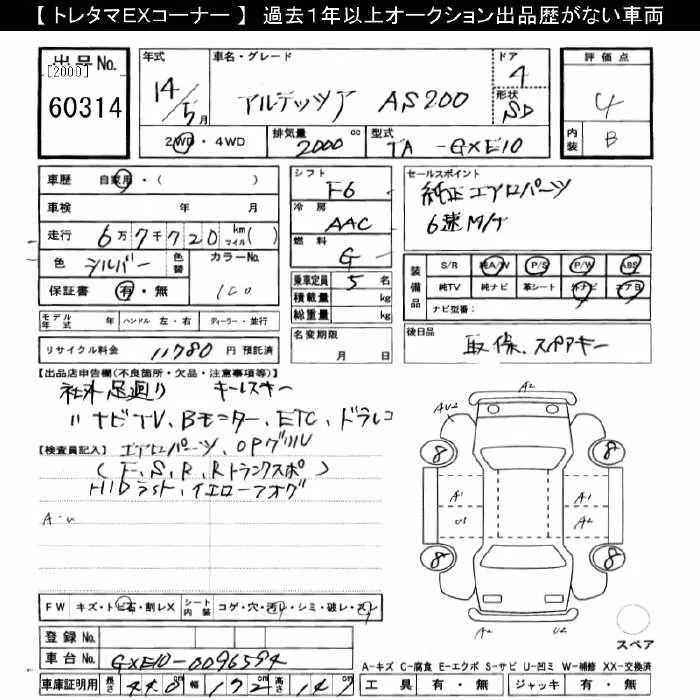 【 トレタマEXコーナー 】 過去1年以上オークション出品歴がない車両
出品No.
[2000]
60314
年式
14/5月
車名・グレード
アルテッツァ AS200
ドア
4
形状
SD
評価点
4
内装
B
2WD・4WD
排気量
2000 cc
型式
TA-GXE10
車歴 自家用・( )
車検 年 月
走行 6万7千720 km マイル( )
色 シルバー 色替 カラーNo. 1C0
保証書 有・無
モデル年式 年 ハンドル 左・右 ディーラー・並行
リサイクル料金 11780 円 預託済
シフト
F6
冷房
AAC
燃料
G
乗車定員 5 名
積載量 kg
総重量 kg
名変期限
月 日
セールスポイント
純正エアロパーツ
6速M/T
装備品
S/R 純A/W P/S P/W ABS
純TV 純ナビ 革シート 外ナビ エアB
ナビ型番:
後日品
取保、スペアキー
【出品店申告欄(不良箇所・欠品・注意事項等)】
社外足廻り キーレスキー
〃ナビTV、Bモニター、ETC、ドラレコ
【検査員記入】 エアロパーツ、OPグリル
(F、S、R、Rトランクスポ)
HIDライト、イエローフォグ
A・U
A2
AU2
8
8
A1
U1
A1
A2
8
8
A2
U2
スペア
FW キズ・トビ石・割レX シート内装 コゲ・穴・汚レ・シミ・破レ・スレ
登録No.
車台No. GXE10-0096594
車庫証明用 長さ 440 幅 172 高さ 141
A-キズ C-腐食 E-エクボ S-サビ U-凹ミ W-補修 XX-交換済
工具 有・無 ジャッキ 有・無